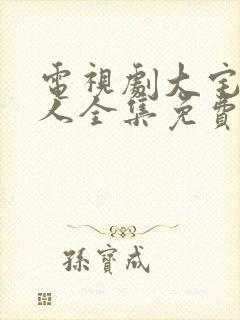 電視劇大宅
人全集免費
孫寶成